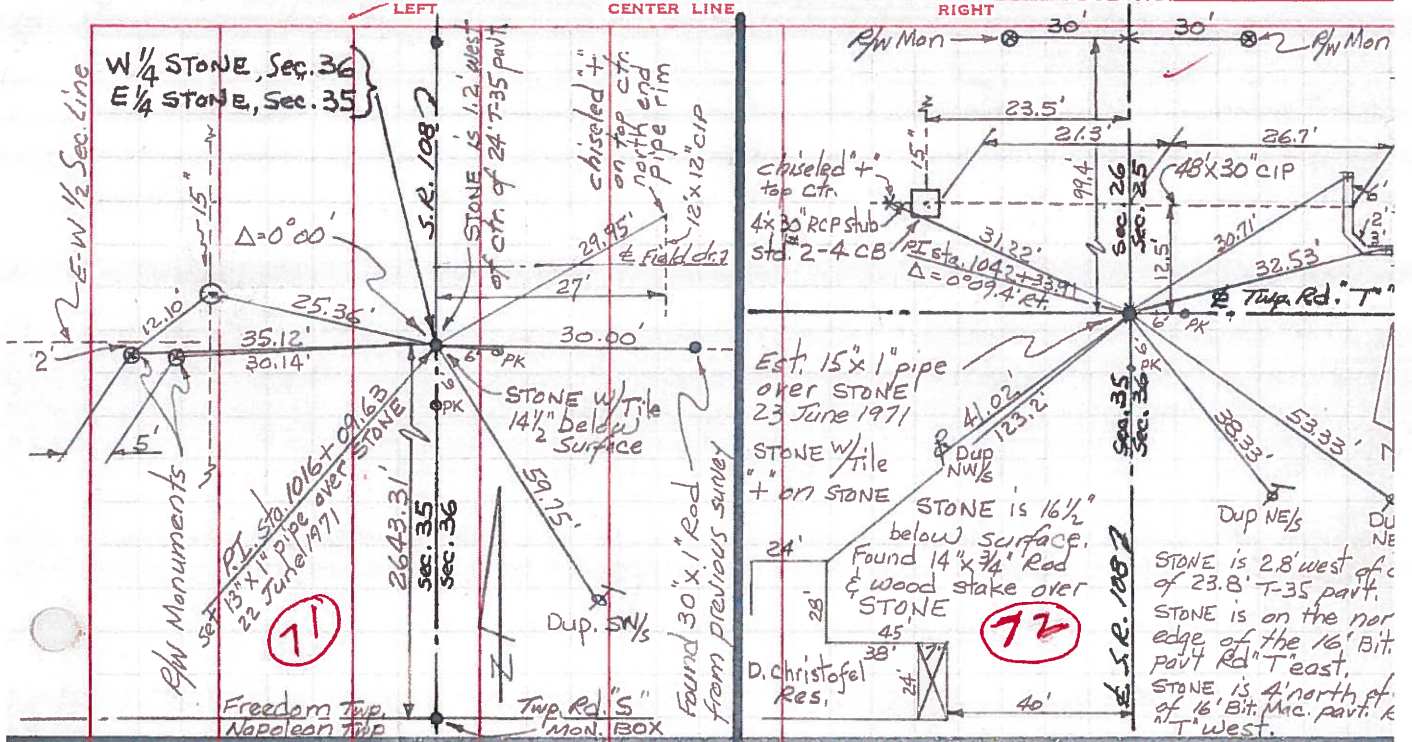 LEFT
CENTER LINE
RIGHT
W 1/4 STONE, Sec. 36
E 1/4 STONE, Sec. 35
E-W 1/2 Sec. Line
15"
Δ=0°00'
S.R. 108
STONE is 1.2' West
of ctr. of 24' T-35 pavt.
chiseled "+"
on top ctr.
north end
pipe rim
12' x 12" CIP
29.95'
Field dr.
27'
12.10'
25.36'
35.12'
30.14'
2'
6'
PK
30.00'
6'
PK
STONE W/Tile
14 1/2" below
Surface
5'
R/W Monuments
P.O.T. Sta. 1016+09.63
Set 13" x 1" Pipe over STONE
22 June 1971
2643.31'
Sec. 35
Sec. 36
59.75'
Dup. SW/S
Found 30" x 1" Rod
from previous survey
71
N
Freedom Twp.
Napoleon Twp
Twp. Rd. "S"
MON. BOX
R/W Mon
30'
30'
R/W Mon
23.5'
21.3'
26.7'
15"
99.4'
Sec. 26
Sec. 25
48' x 30" CIP
chiseled "+"
top ctr.
4' x 30" RCP stub
std. 2-4 CB
31.22'
P.I. sta. 1042+33.91
Δ = 0°09.4' Rt.
12.5'
30.71'
32.53'
6'
2'
Twp. Rd. "T"
6'
PK
6'
PK
Est. 15" x 1" pipe
over STONE
23 June 1971
STONE W/Tile
"+" on STONE
41.02'
123.2'
Dup
NW/S
Sec. 35
Sec. 36
38.33'
53.33'
Dup NE/S
Du
NE
7
STONE is 16 1/2"
below surface.
Found 14" x 3/4" Rod
& wood stake over
STONE
24'
28'
45'
38'
7'
24'
D. Christofel
Res.
72
40'
S.R. 108
STONE is 2.8' west of c
of 23.8' T-35 pavt.
STONE is on the nor
edge of the 16' Bit.
pavt Rd "T" east.
STONE is 4' north of
of 16' Bit. Mac. pavt. R
"T" west.